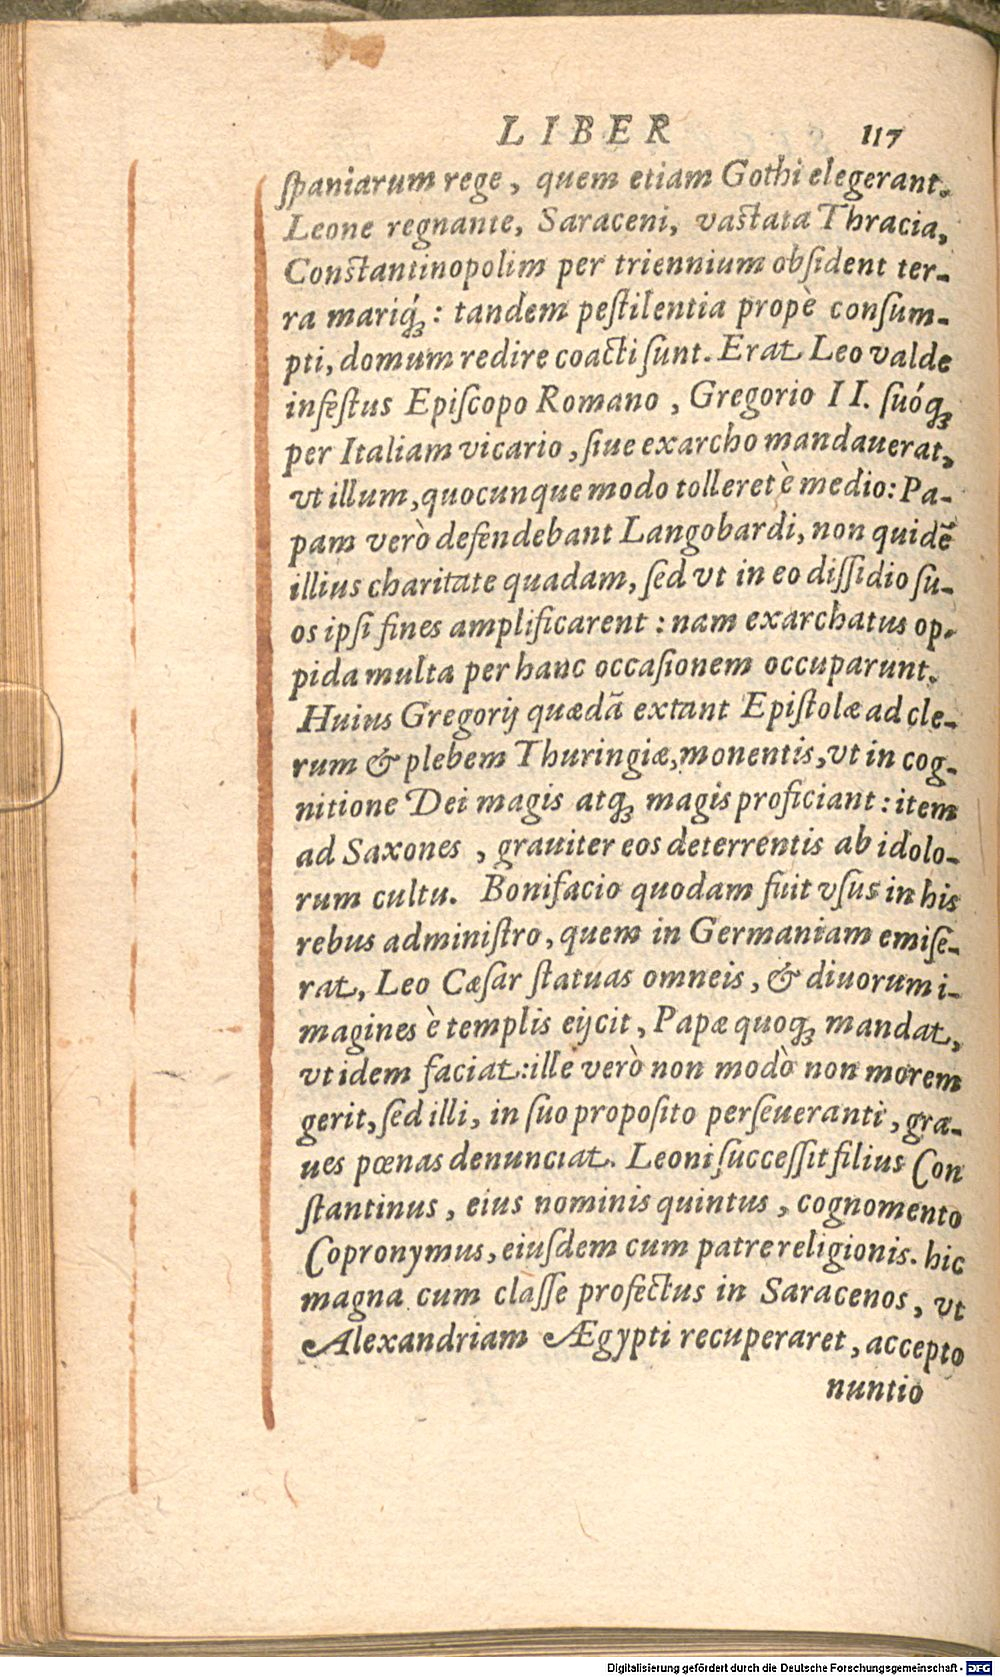 LIBER 117
ſpaniarum rege, quem etiam Gothi elegerant.
Leone regnante, Saraceni, vaſtata Thracia,
Conſtantinopolim per triennium obſident ter-
ra mariq́ꝫ: tandem peſtilentia propè conſum-
pti, domum redire coacti ſunt. Erat Leo valde
infeſtus Epiſcopo Romano, Gregorio II. ſuóqꝫ
per Italiam vicario, ſiue exarcho mandauerat,
vt illum, quocunque modo tolleret è medio: Pa-
pam verò defendebant Langobardi, non quidẽ
illius charitate quadam, ſed vt in eo diſſidio ſu-
os ipſi fines amplificarent: nam exarchatus op-
pida multa per hanc occaſionem occuparunt.
Huius Gregorij quædã extant Epiſtolæ ad cle-
rum & plebem Thuringiæ, monentis, vt in cog-
nitione Dei magis atqꝫ magis proficiant: item
ad Saxones, grauiter eos deterrentis ab idolo-
rum cultu. Bonifacio quodam fuit vſus in his
rebus adminiſtro, quem in Germaniam emiſe-
rat, Leo Cæſar ſtatuas omneis, & diuorum i-
magines è templis eijcit, Papæ quoqꝫ mandat,
vt idem faciat: ille verò non modò non morem
gerit, ſed illi, in ſuo propoſito perſeueranti, gra-
ues pœnas denunciat. Leoni ſucceſſit filius Con
ſtantinus, eius nominis quintus, cognomento
Copronymus, eiuſdem cum patre religionis. hic
magna cum claſſe profectus in Saracenos, vt
Alexandriam Ægypti recuperaret, accepto
nuntio
Digitalisierung gefördert durch die Deutsche Forschungsgemeinschaft - DFG